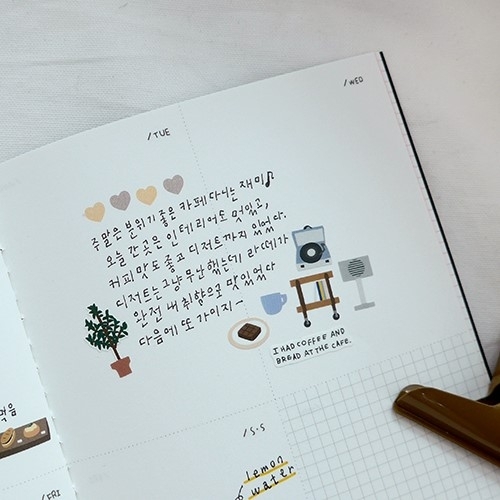 /WED
/TUE
주말은 분위기 좋은 카페 다니는 재미♪
오늘 간 곳은 인테리어도 멋있고,
커피 맛도 좋고 디저트까지 있었다.
디저트는 그냥 무난했는데 라떼가
완전 내 취향으로 맛있었다
다음에 또 가야지~
I HAD COFFEE AND
BREAD AT THE CAFE.
먹음
/S·S
lemon
water
/FRI